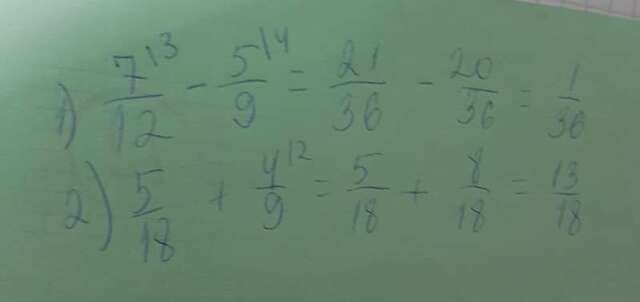 1) 7^{\3}/12 - 5^{\4}/9 = 21/36 - 20/36 = 1/36
2) 5/18 + 4^{\2}/9 = 5/18 + 8/18 = 13/18